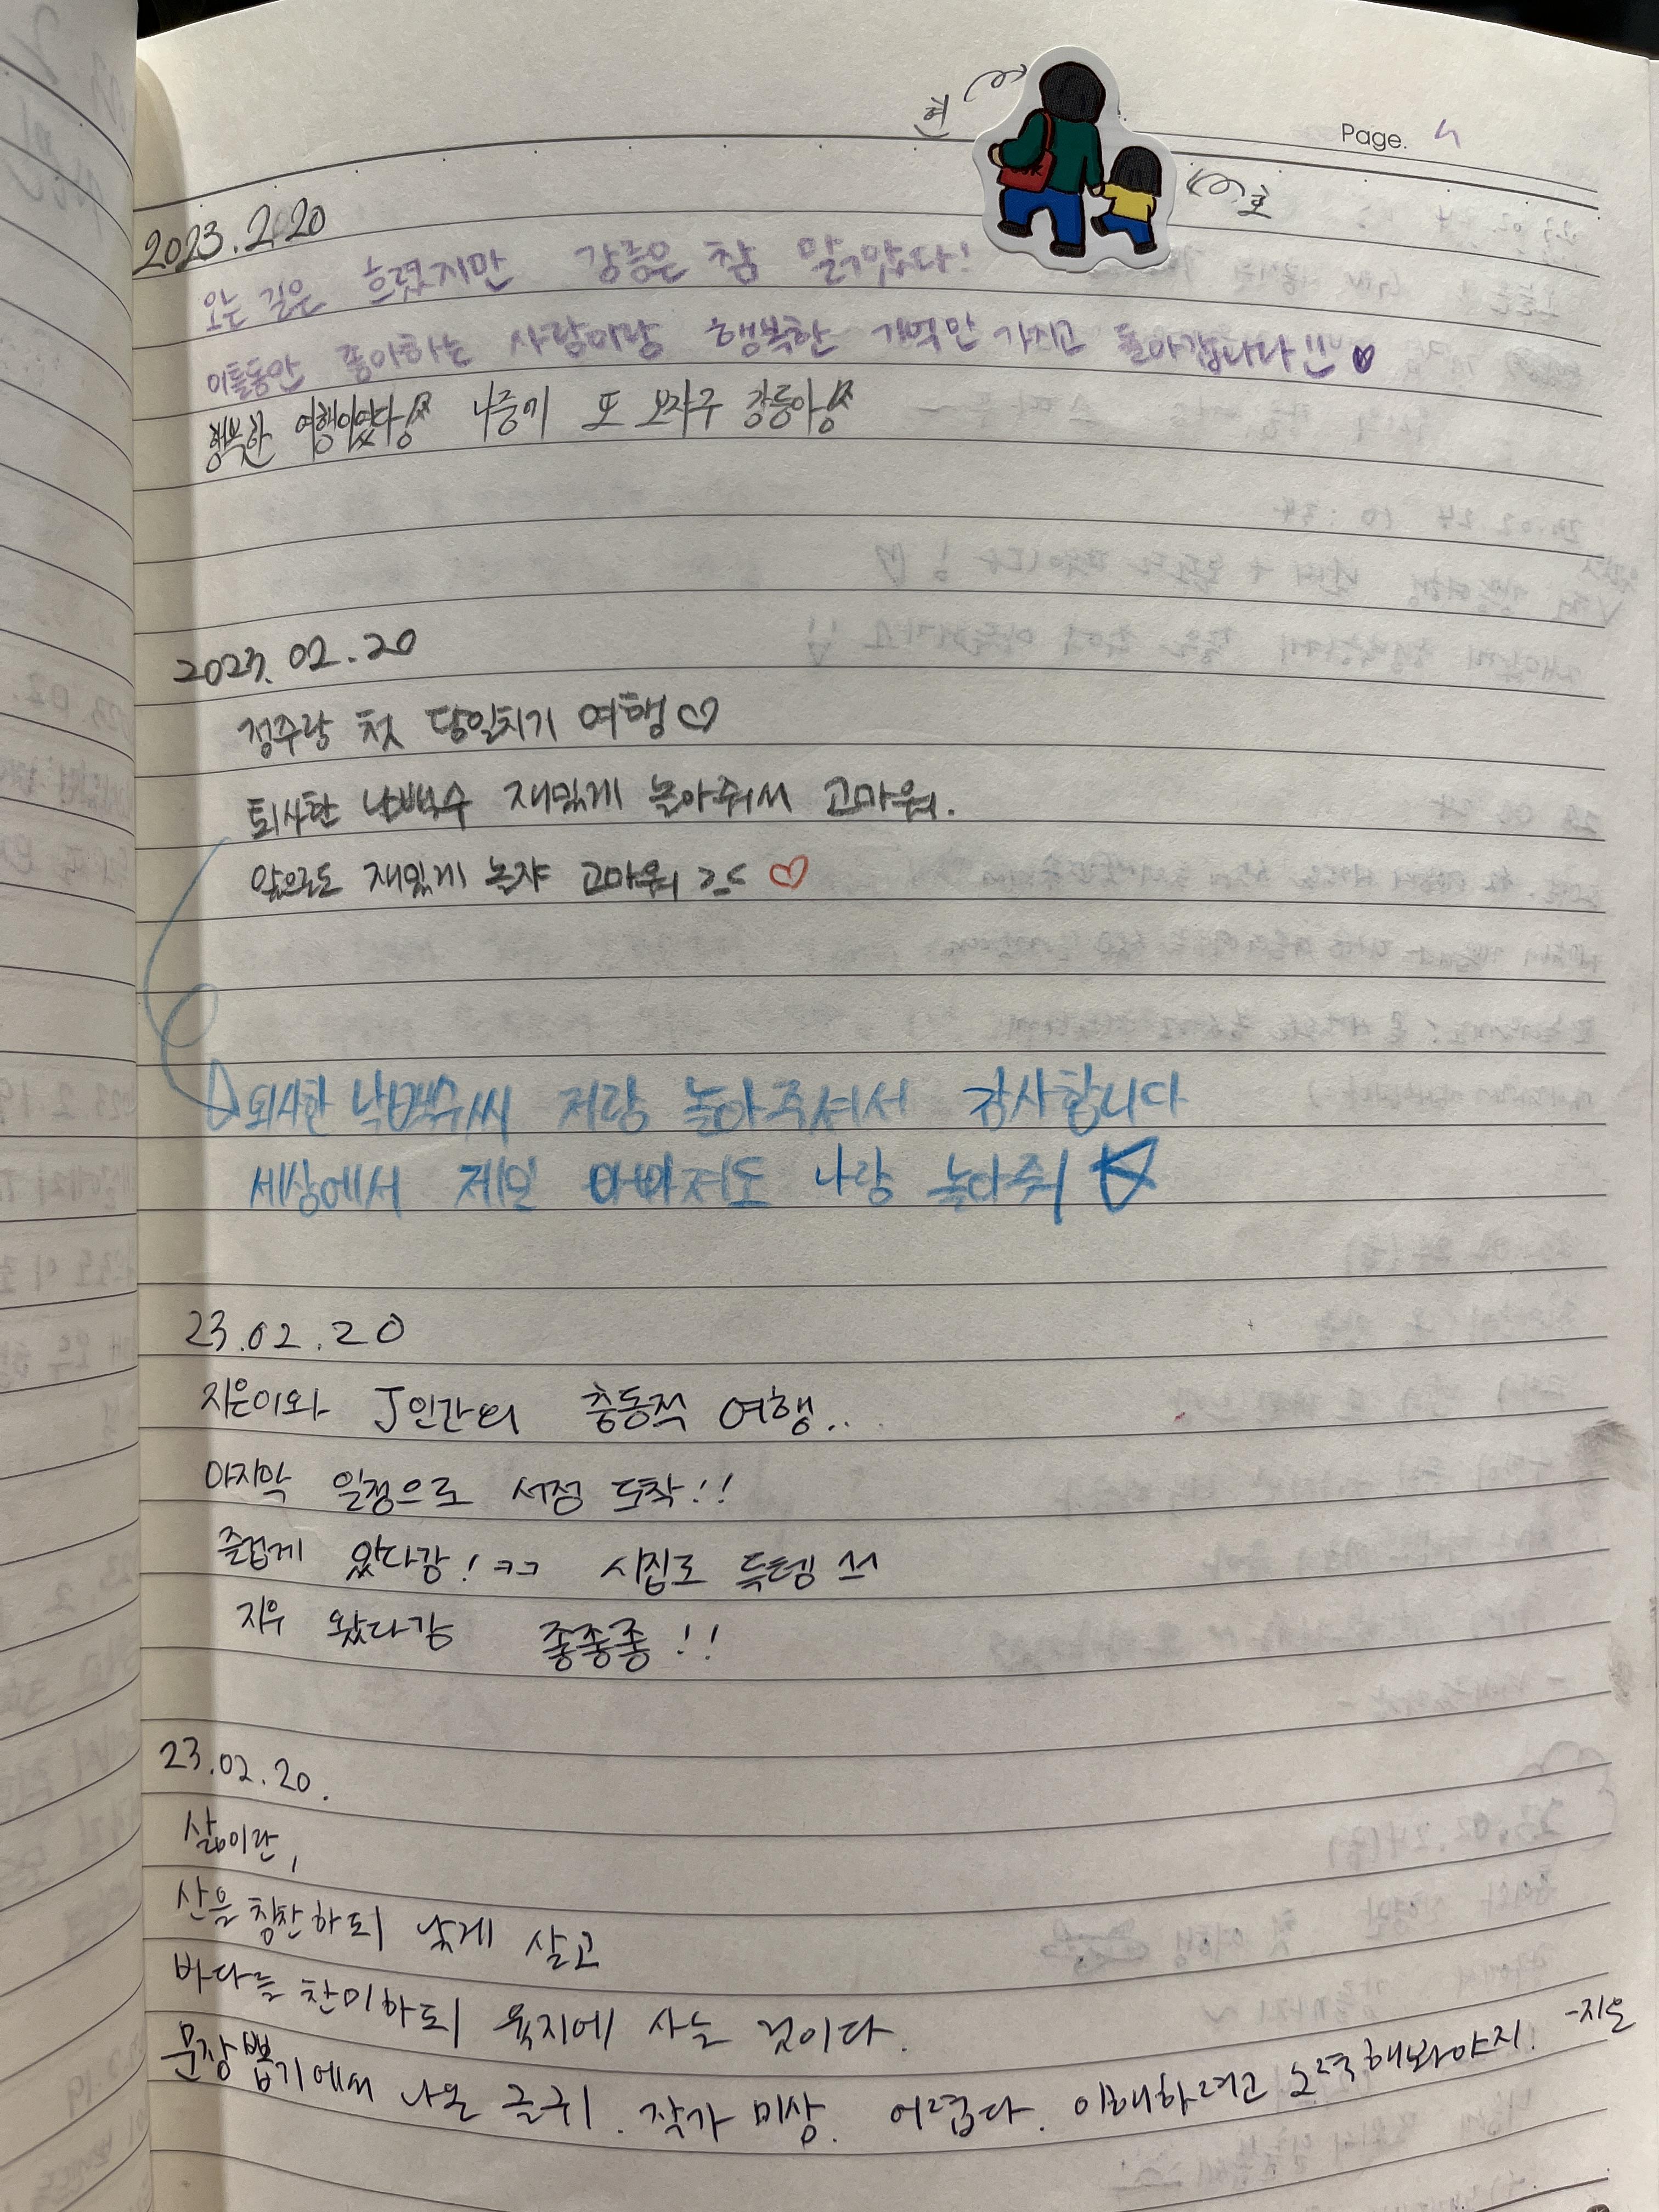 Page. 5
혀
호
2023.2.20
오는 길은 흐렸지만 강릉은 참 맑았다!
이틀동안 좋아하는 사람이랑 행복한 기억만 가지고 돌아갑니다!! ♥
행복한 여행이였다! 나중에 또 오자구 강릉아!
2023.02.20
정주랑 첫 당일치기 여행♡
퇴사한 낙백수 재밌게 놀아줘서 고마워.
앞으로도 재밌게 놀쟈 고마워 ♡
퇴사한 낙백수씨 저랑 놀아주셔서 감사합니다
세상에서 제일 바빠져도 나랑 놀아줘 ☆
23.02.20
지은이와 J인간의 충동적 여행..
마지막 일정으로 서점 도착!!
즐겁게 왔다감! ㅋㅋ 시집도 득템
지우 왔다감 좋좋좋!!
23.02.20.
삶이란,
산을 칭찬하되 낮게 살고
바다를 찬미하되 육지에 사는 것이다.
문장뽑기에서 나온 글귀. 작가 미상. 어렵다. 이해하려고 노력해봐야지. -지은